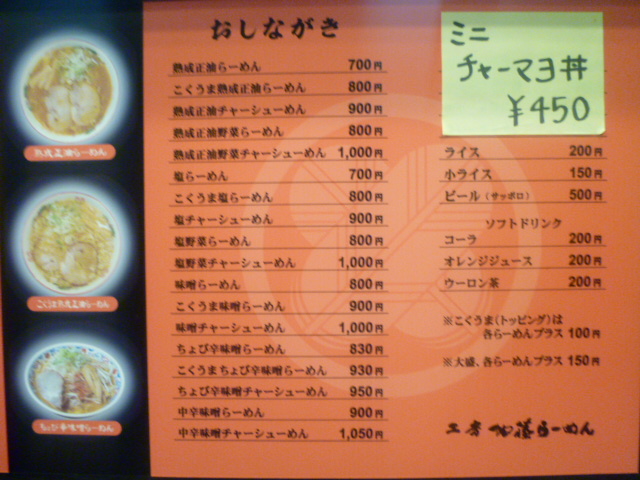 おしながき
熟成正油らーめん 700円
こくうま熟成正油らーめん 800円
熟成正油チャーシューめん 900円
熟成正油野菜らーめん 800円
熟成正油野菜チャーシューめん 1,000円
塩らーめん 700円
こくうま塩らーめん 800円
塩チャーシューめん 900円
塩野菜らーめん 800円
塩野菜チャーシューめん 1,000円
味噌らーめん 800円
こくうま味噌らーめん 900円
味噌チャーシューめん 1,000円
ちょび辛味噌らーめん 830円
こくうまちょび辛味噌らーめん 930円
ちょび辛味噌チャーシューめん 950円
中辛味噌らーめん 900円
中辛味噌チャーシューめん 1,050円
ミニ
チャーマヨ丼
¥450
ライス 200円
小ライス 150円
ビール(サッポロ) 500円
ソフトドリンク
コーラ 200円
オレンジジュース 200円
ウーロン茶 200円
※こくうま(トッピング)は
各らーめんプラス 100円
※大盛、各らーめんプラス 150円
工房 加藤らーめん
熟成正油らーめん
こくうま熟成正油らーめん
ちょび辛味噌らーめん